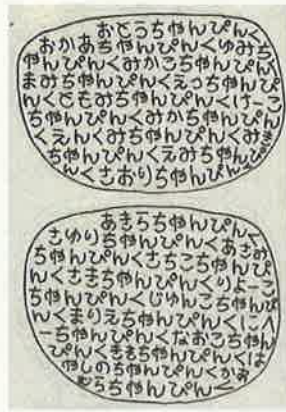 おとうちゃんぴんく
おかあちゃんぴんくゆみち
ゃんぴんくみかこちゃんぴん
まみちゃんぴんくえっちゃんぴ
んくともみちゃんぴんくけーこ
ちゃんぴんくみかちゃんぴんく
えんくみちゃんぴんくみ
ちゃんぴんくえみちゃん
くさおりちゃんぴん
あきらちゃんぴんく
さゆりちゃんぴんくあさみ
ちゃんぴんくさちこちゃんぴ
んくさきちゃんぴんくりょーこ
ちゃんぴんくじゅんこちゃんぴ
んくまりえちゃんぴんくに
ーちゃんぴんくなおこちゃん
ぴんくききちゃんぴんくは
やしのちゃんぴんくかお
ちゃんぴんく